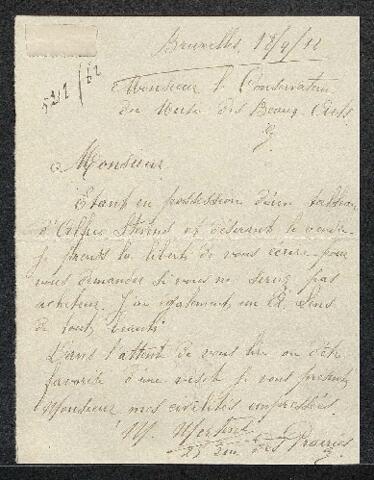 Bruxelles, 18/9/12
521/62
Monsieur le Conservateur
du Musée des Beaux Arts
Monsieur
Etant en possession d'un tableau
d'Alfred Stevens et désirant le vendre
je prends la liberté de vous écrire pour
vous demander si vous ne seriez pas
acheteur. J'en également un
de toute beauté
Dans l'attente de vous lire ou d'être
favorisé d'une visite je vous présente
Monsieur mes civilités empressées
M.
25 rue des Prairies